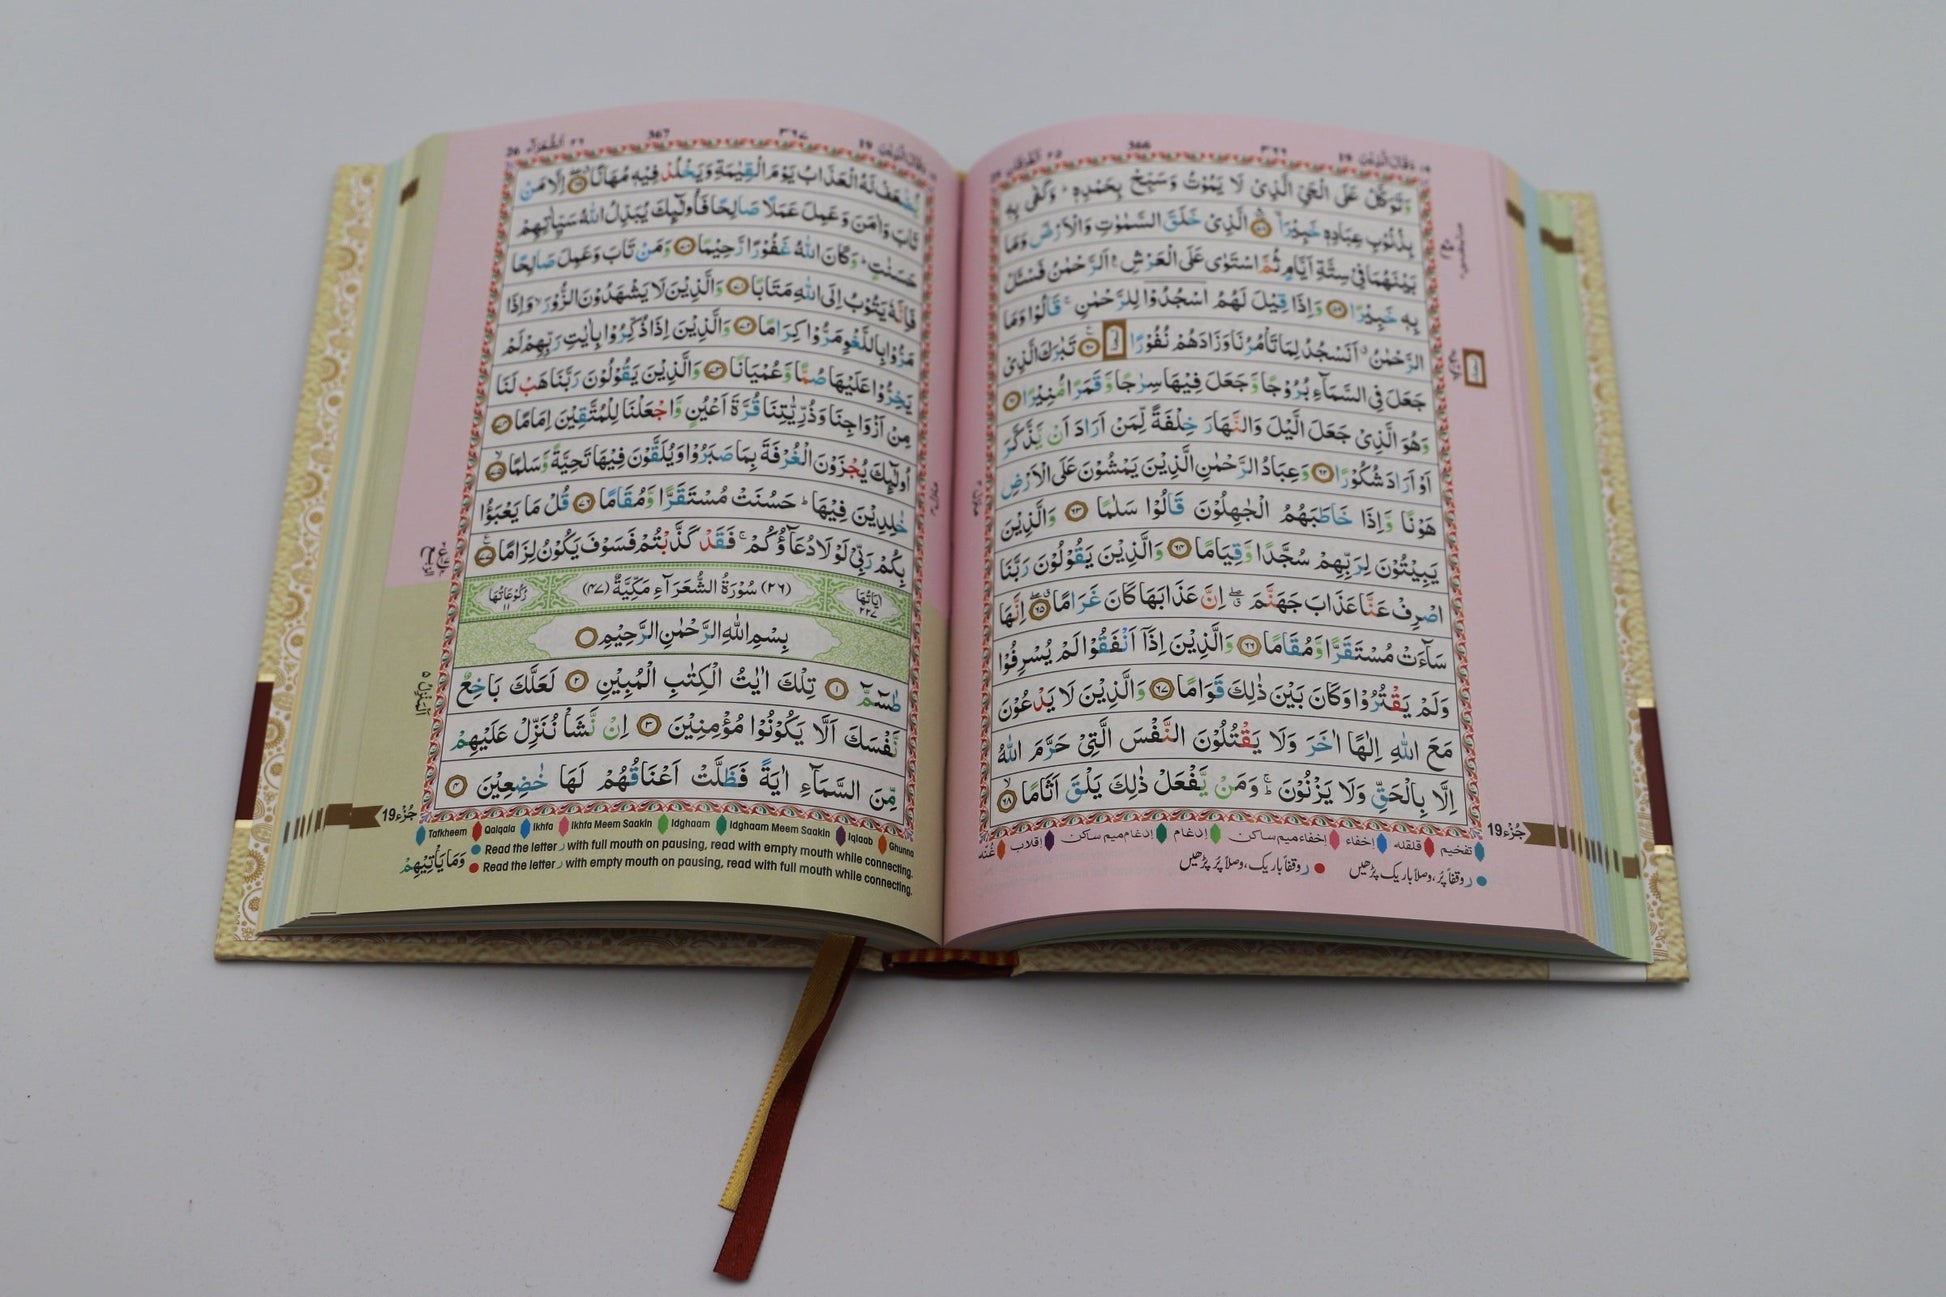 وقال الذین ۱۹
۳۶۶
366
الفرقان ۲۵
وَتَوَكَّلْ عَلَى الْحَيِّ الَّذِىْ لَا يَمُوْتُ وَسَبِّحْ بِحَمْدِهٖ ؕ وَكَفٰى بِهٖ
بِذُنُوْبِ عِبَادِهٖ خَبِيْرًا ۙ﴿۵۸﴾ الَّذِىْ خَلَقَ السَّمٰوٰتِ وَالْاَرْضَ وَمَا
بَيْنَهُمَا فِىْ سِتَّةِ اَيَّامٍ ثُمَّ اسْتَوٰى عَلَى الْعَرْشِ ۛۚ اَلرَّحْمٰنُ فَسْئَلْ
بِهٖ خَبِيْرًا ﴿۵۹﴾ وَاِذَا قِيْلَ لَهُمُ اسْجُدُوْا لِلرَّحْمٰنِ ۚ قَالُوْا وَمَا
الرَّحْمٰنُ ۗ اَنَسْجُدُ لِمَا تَاْمُرُنَا وَزَادَهُمْ نُفُوْرًا ۩ ﴿۶۰﴾ تَبٰرَكَ الَّذِىْ
جَعَلَ فِى السَّمَآءِ بُرُوْجًا وَّجَعَلَ فِيْهَا سِرٰجًا وَّقَمَرًا مُّنِيْرًا ﴿۶۱﴾
وَهُوَ الَّذِىْ جَعَلَ الَّيْلَ وَالنَّهَارَ خِلْفَةً لِّمَنْ اَرَادَ اَنْ يَّذَّكَّرَ
اَوْ اَرَادَ شُكُوْرًا ﴿۶۲﴾ وَعِبَادُ الرَّحْمٰنِ الَّذِيْنَ يَمْشُوْنَ عَلَى الْاَرْضِ
هَوْنًا وَّاِذَا خَاطَبَهُمُ الْجٰهِلُوْنَ قَالُوْا سَلٰمًا ﴿۶۳﴾ وَالَّذِيْنَ
يَبِيْتُوْنَ لِرَبِّهِمْ سُجَّدًا وَّقِيَامًا ﴿۶۴﴾ وَالَّذِيْنَ يَقُوْلُوْنَ رَبَّنَا
اصْرِفْ عَنَّا عَذَابَ جَهَنَّمَ ۖ اِنَّ عَذَابَهَا كَانَ غَرَامًا ۖ﴿۶۵﴾ اِنَّهَا
سَآءَتْ مُسْتَقَرًّا وَّمُقَامًا ﴿۶۶﴾ وَالَّذِيْنَ اِذَاۤ اَنْفَقُوْا لَمْ يُسْرِفُوْا
وَلَمْ يَقْتُرُوْا وَكَانَ بَيْنَ ذٰلِكَ قَوَامًا ﴿۶۷﴾ وَالَّذِيْنَ لَا يَدْعُوْنَ
مَعَ اللّٰهِ اِلٰهًا اٰخَرَ وَلَا يَقْتُلُوْنَ النَّفْسَ الَّتِىْ حَرَّمَ اللّٰهُ
اِلَّا بِالْحَقِّ وَلَا يَزْنُوْنَ ۚ وَمَنْ يَّفْعَلْ ذٰلِكَ يَلْقَ اَثَامًا ۙ﴿۶۸﴾
جُزْء 19
تفخیم قلقلہ إخفاء إخفاء میم ساکن إدغام إدغام میم ساکن إقلاب غُنّہ
ر وقفاً پُر، وصلاً باریک پڑھیں ر وقفاً باریک، وصلاً پُر پڑھیں
وقال الذین ۱۹
۳۶۷
367
الشعراء ۲۶
26
يُّضٰعَفْ لَهُ الْعَذَابُ يَوْمَ الْقِيٰمَةِ وَيَخْلُدْ فِيْهٖ مُهَانًا ۖ﴿۶۹﴾ اِلَّا مَنْ
تَابَ وَاٰمَنَ وَعَمِلَ عَمَلًا صَالِحًا فَاُولٰٓئِكَ يُبَدِّلُ اللّٰهُ سَيِّاٰتِهِمْ
حَسَنٰتٍ ؕ وَكَانَ اللّٰهُ غَفُوْرًا رَّحِيْمًا ﴿۷۰﴾ وَمَنْ تَابَ وَعَمِلَ صَالِحًا
فَاِنَّهٗ يَتُوْبُ اِلَى اللّٰهِ مَتَابًا ﴿۷۱﴾ وَالَّذِيْنَ لَا يَشْهَدُوْنَ الزُّوْرَ ۙ وَاِذَا
مَرُّوْا بِاللَّغْوِ مَرُّوْا كِرَامًا ﴿۷۲﴾ وَالَّذِيْنَ اِذَا ذُكِّرُوْا بِاٰيٰتِ رَبِّهِمْ لَمْ
يَخِرُّوْا عَلَيْهَا صُمًّا وَّعُمْيَانًا ﴿۷۳﴾ وَالَّذِيْنَ يَقُوْلُوْنَ رَبَّنَا هَبْ لَنَا
مِنْ اَزْوَاجِنَا وَذُرِّيّٰتِنَا قُرَّةَ اَعْيُنٍ وَّاجْعَلْنَا لِلْمُتَّقِيْنَ اِمَامًا ﴿۷۴﴾
اُولٰٓئِكَ يُجْزَوْنَ الْغُرْفَةَ بِمَا صَبَرُوْا وَيُلَقَّوْنَ فِيْهَا تَحِيَّةً وَّسَلٰمًا ۙ﴿۷۵﴾
خٰلِدِيْنَ فِيْهَا ؕ حَسُنَتْ مُسْتَقَرًّا وَّمُقَامًا ﴿۷۶﴾ قُلْ مَا يَعْبَؤُا
بِكُمْ رَبِّىْ لَوْلَا دُعَآؤُكُمْ ۚ فَقَدْ كَذَّبْتُمْ فَسَوْفَ يَكُوْنُ لِزَامًا ﴿۷۷﴾
اٰيَاتُهَا ۲۲۷ (۲۶) سُوْرَةُ الشُّعَرَآءِ مَكِّيَّةٌ (۴۷) رُكُوْعَاتُهَا ۱۱
بِسْمِ اللّٰهِ الرَّحْمٰنِ الرَّحِيْمِ
طٰسٓمّٓ ﴿۱﴾ تِلْكَ اٰيٰتُ الْكِتٰبِ الْمُبِيْنِ ﴿۲﴾ لَعَلَّكَ بَاخِعٌ
نَّفْسَكَ اَلَّا يَكُوْنُوْا مُؤْمِنِيْنَ ﴿۳﴾ اِنْ نَّشَاْ نُنَزِّلْ عَلَيْهِمْ
مِّنَ السَّمَآءِ اٰيَةً فَظَلَّتْ اَعْنَاقُهُمْ لَهَا خٰضِعِيْنَ ﴿۴﴾
جُزْء 19
Tafkheem Qalqala Ikhfa Ikhfa Meem Saakin Idghaam Idghaam Meem Saakin Iqlaab Ghunna
Read the letter ر with full mouth on pausing, read with empty mouth while connecting.
Read the letter ر with empty mouth on pausing, read with full mouth while connecting.
وَمَا يَاْتِيْهِمْ